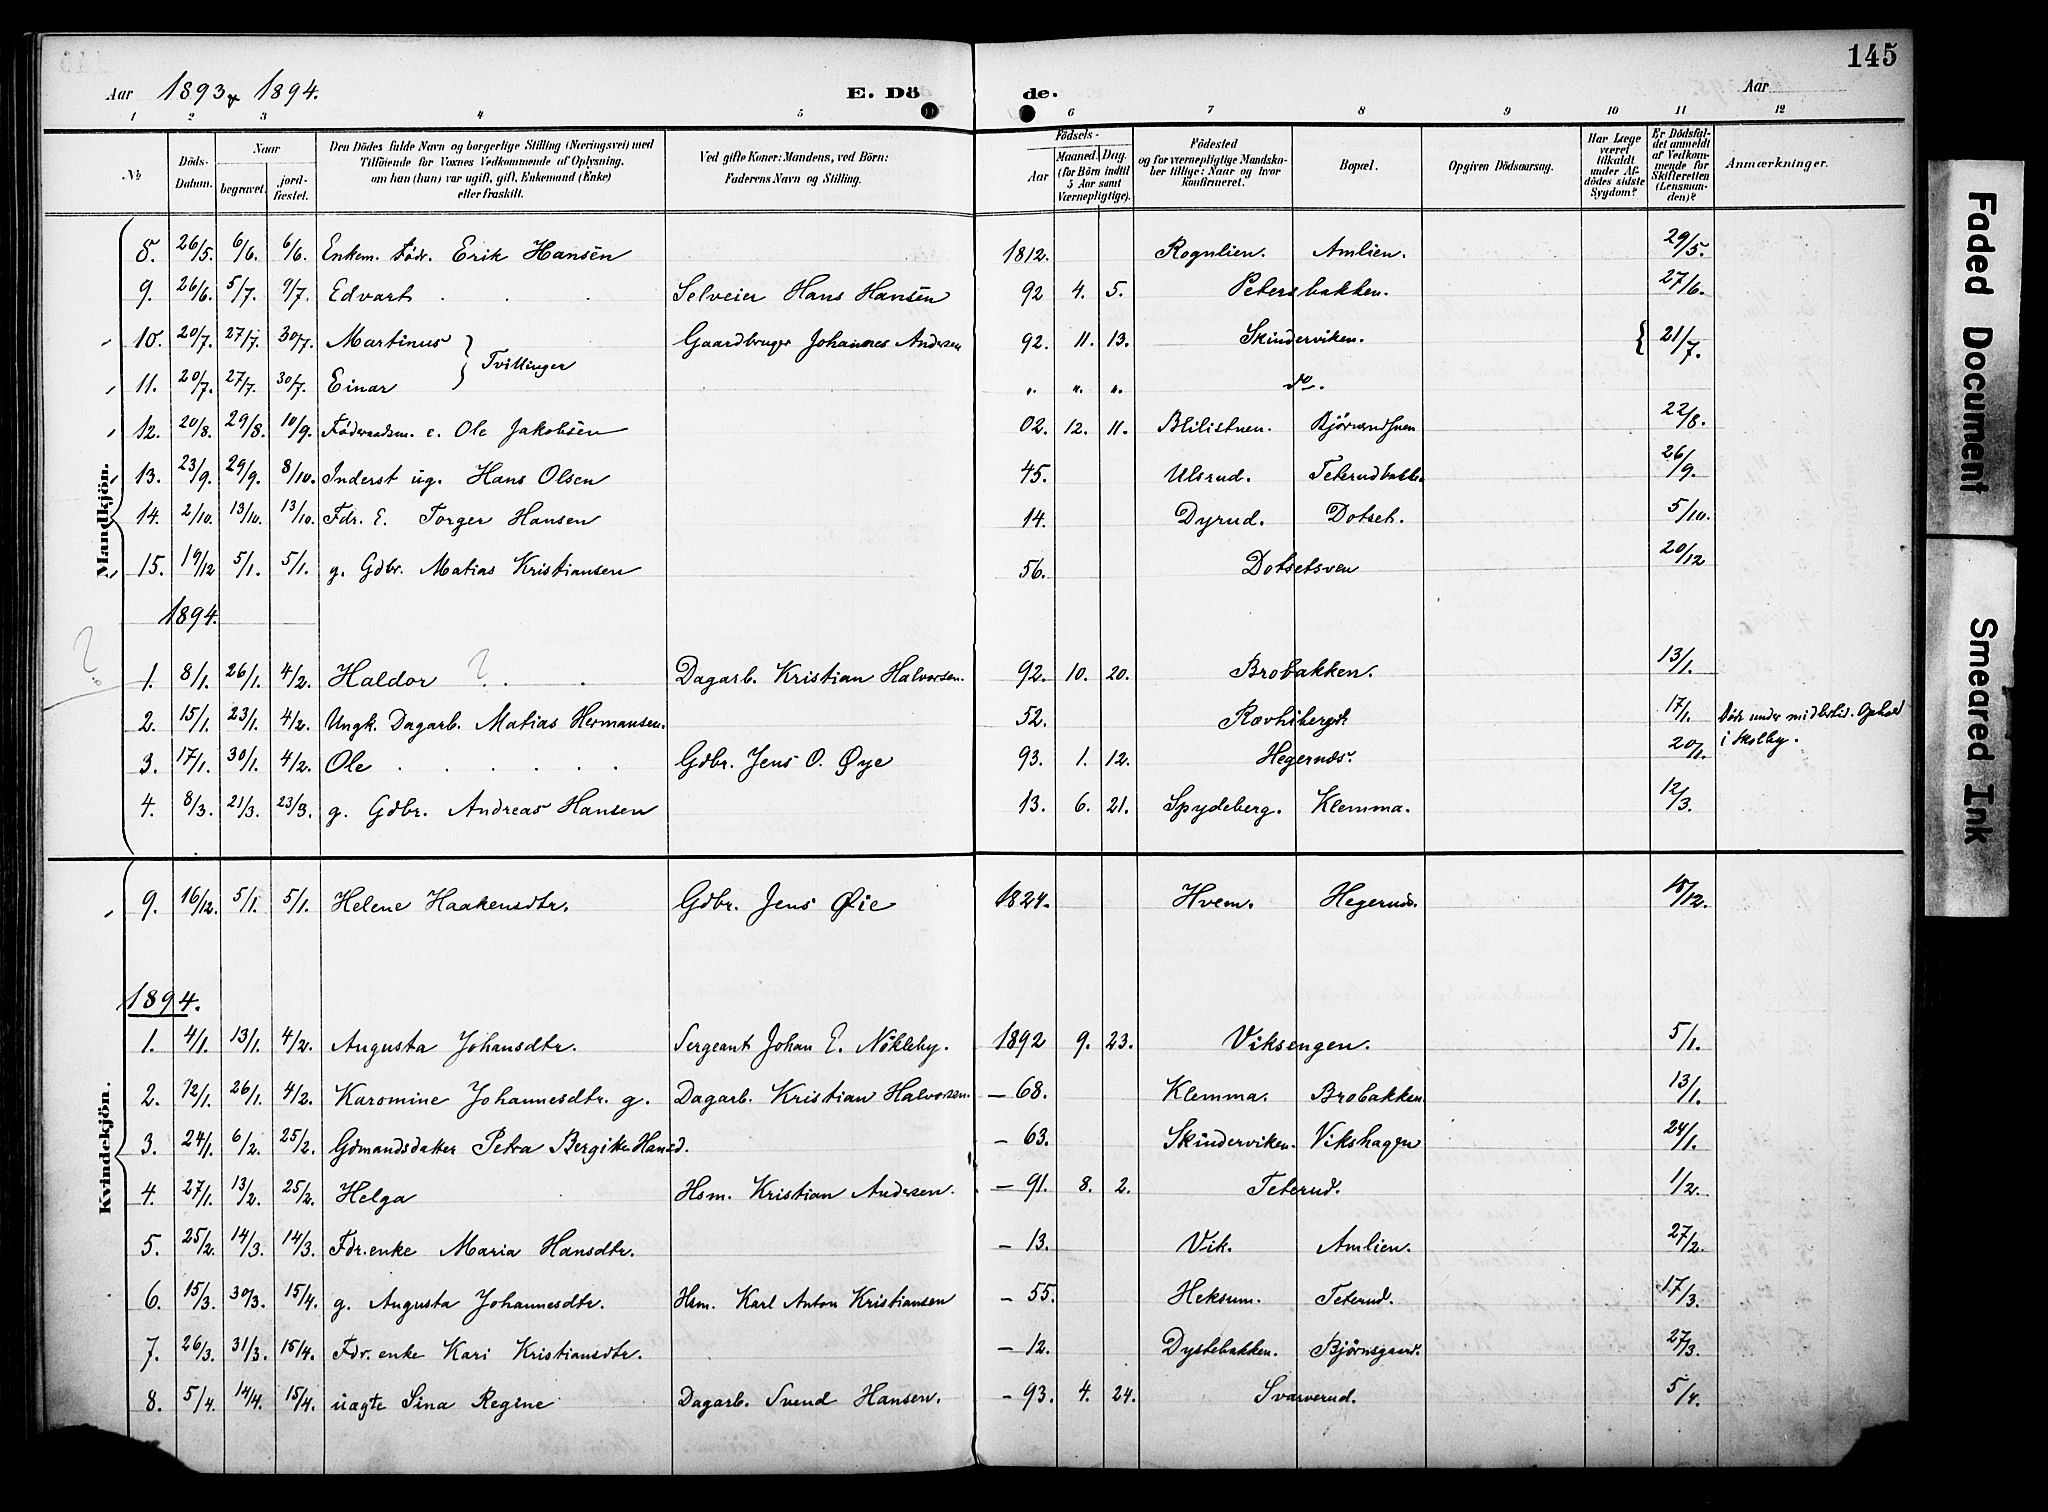 145
Aar 1893 & 1894. E. Dö de. Aar
1 2 3 4 5 6 7 8 9 10 11 12
No
Döds-Datum.
Naar
begravet. jord-fæstet.
Den Dödes fulde Navn og borgerlige Stilling (Næringsvei) med
Tilföiende for Voxnes Vedkommende af Oplysning,
om han (hun) var ugift, gift, Enkemand (Enke)
eller fraskilt.
Ved gifte Koner: Mandens, ved Börn:
Faderens Navn og Stilling.
Födsels-
Aar Maaned. Dag.
(for Börn indtil
5 Aar samt
Værnepligtige).
Födested
og for værnepligtige Mandska-
ber tillige: Naar og hvor
konfirmeret.
Bopæl.
Opgiven Dödsaarsag.
Har Læge
været
tilkaldt
under Af-
dödes sidste
Sygdom?
Er Dödsfal-
det anmeldt
af Vedkom-
mende for
Skifteretten
(Lensman-
den)?
Anmærkninger.
Mandkjön.
8. 26/5. 6/6. 6/6. Enkem. Födr. Erik Hansen 1812. Rognlien. Amlien. 29/5.
9. 26/6. 5/7. 9/7. Edvart Selveier Hans Hansen 92 4. 5. Petersbakken. 27/6.
10. 20/7. 27/7. 30/7. Martinus } Tvillinger Gaardbruger Johannes Andersen 92. 11. 13. Skinderviken. { 21/7.
11. 20/7. 27/7. 30/7. Einar " " " do.
12. 20/8. 29/8. 10/9. Föderaadsm. e. Ole Jakobsen 02. 12. 11. 22/8.
13. 23/9. 29/9. 8/10. Inderst ug. Hans Olsen 45. Ulsrud. Teterudbakke. 26/9.
14. 2/10. 13/10. 13/10. Fdr. E. Torger Hansen 14. Dyrud. Dotset. 5/10.
15. 19/12 5/1. 5/1. g. Gdbr. Matias Kristiansen 56. Dotsetsven 20/12
1894.
?
1. 8/1. 26/1. 4/2. Haldor ? Dagarb. Kristian Halvorsen. 92. 10. 20. Brobakken. 13/1.
2. 15/1. 23/1. 4/2. Ungk. Dagarb. Matias Hermansen. 52. 17/1. Död under midlertid. Ophold
i Skolby.
3. 17/1. 30/1. 4/2. Ole Gdbr. Jens O. Øye 93. 1. 12. Hegernæs. 20/1.
4. 8/3. 21/3. 23/3. g. Gdbr. Andreas Hansen 13. 6. 21. Spydeberg. Klemma. 12/3.
Kvindekjön.
9. 16/12. 5/1. 5/1. Helene Haakensdtr. Gdbr. Jens Øie 1824. Hvem. Hegernæs. 18/12.
1894.
1. 4/1. 13/1. 4/2. Augusta Johansdtr. Sergeant Johan E. Nökleby. 1892 9. 23. Viksengen. 5/1.
2. 12/1. 26/1. 4/2. Karomine Johannesdtr. g. Dagarb. Kristian Halvorsen. – 68. Klemma. Brobakken 13/1.
3. 24/1. 6/2. 25/2. Gdmandsdatter Petra Bergitte Hansd. – 63. Skinderviken. Vikshagen 24/1.
4. 27/1. 13/2. 25/2. Helga Hsm. Kristian Andersen. – 91. 8. 2. Teterud. 1/2.
5. 25/2. 14/3. 14/3. Fdr. enke Maria Hansdtr. – 13. Vik. Amlien. 27/2.
6. 15/3. 30/3. 15/4. g. Augusta Johannesdtr. Hsm. Karl Anton Kristiansen – 55. Heksum. Teterud. 17/3.
7. 26/3. 31/3. 15/4. Fdr. enke Kari Kristiansdtr. – 12. Dystebakken. Björnsgaard. 27/3.
8. 5/4. 14/4. 15/4. uægte Sina Regine Dagarb. Svend Hansen. – 93. 4. 24. Svarverud. 5/4.
Faded Document
Smeared Ink